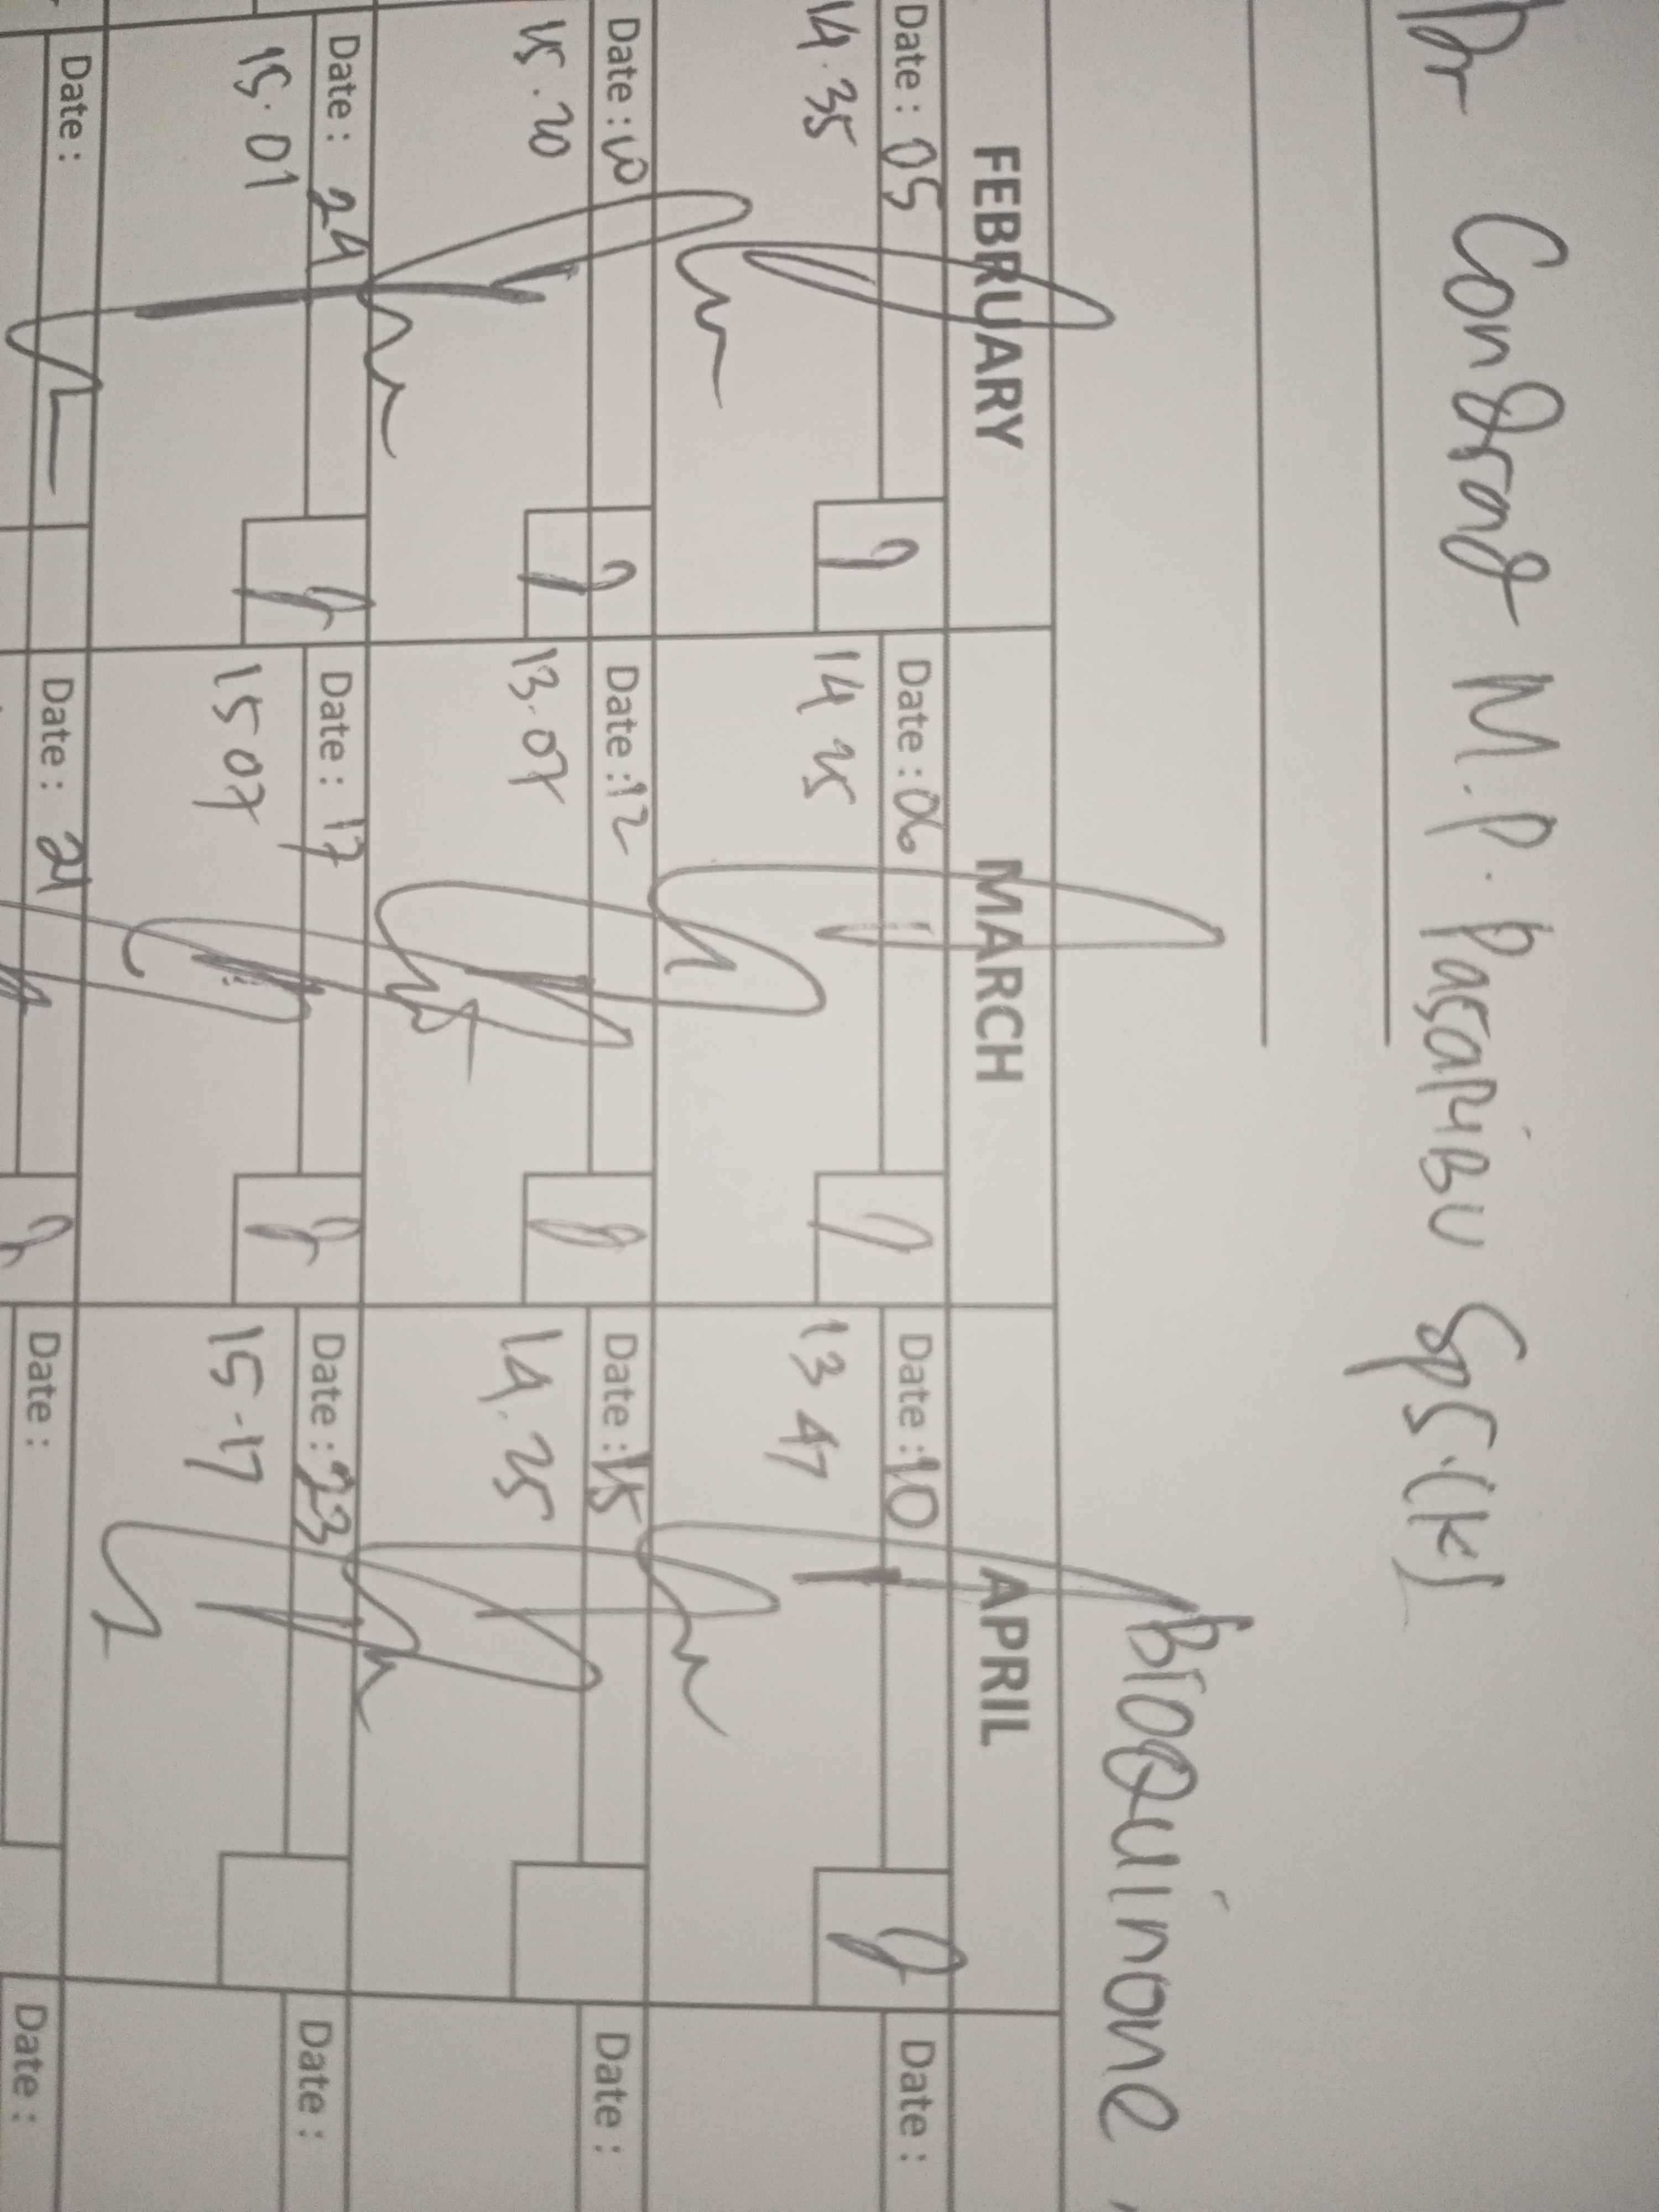 Dr Condrad M.P. Pasaribu SpS.(K)
BioQuinone
FEBRUARY MARCH APRIL
Date : 05 Date : 06 Date : 10 Date :
14.35 14 25 13 47
Date : 10 Date : 12 Date : 15 Date :
15.20 13.07 14.25
Date : 24 Date : 17 Date : 23 Date :
15.01 15 07 15.17
Date : Date : 21 Date : Date :